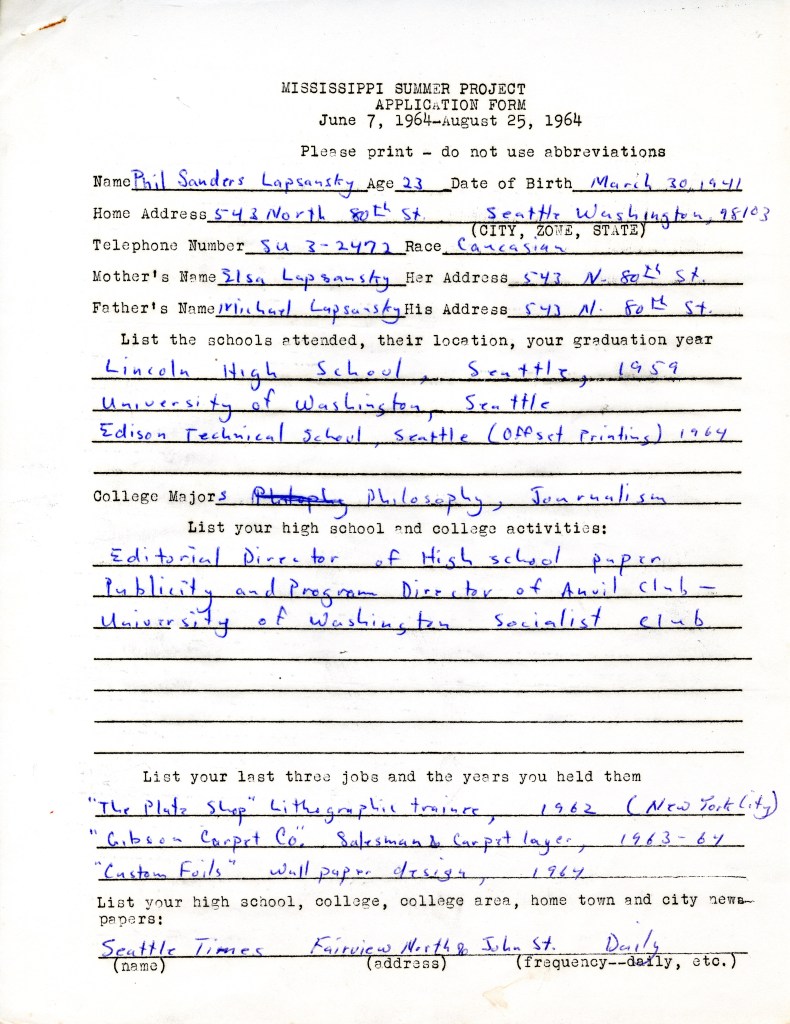 MISSISSIPPI SUMMER PROJECT
APPLICATION FORM
June 7, 1964-August 25, 1964
Please print - do not use abbreviations
Name Phil Sanders Lapsansky Age 23 Date of Birth March 30, 1941
Home Address 543 North 80th St. Seattle Washington, 98103
(CITY, ZONE, STATE)
Telephone Number SU 3-2472 Race Caucasian
Mother's Name Elsa Lapsansky Her Address 543 N. 80th St.
Father's Name Michael Lapsansky His Address 543 N. 80th St.
List the schools attended, their location, your graduation year
Lincoln High School, Seattle, 1959
University of Washington, Seattle
Edison Technical School, Seattle (Offset Printing) 1964
College Majors Philosophy, Journalism
List your high school and college activities:
Editorial Director of High school paper
Publicity and Program Director of Anvil Club -
University of Washington Socialist Club
List your last three jobs and the years you held them
"The Plate Shop" Lithographic trainee, 1962 (New York City)
"Gibson Carpet Co". Salesman & Carpet layer, 1963-64
"Custom Foils" wall paper design, 1964
List your high school, college, college area, home town and city news-
papers:
Seattle Times Fairview North & John St. Daily
(name) (address) (frequency--daily, etc.)